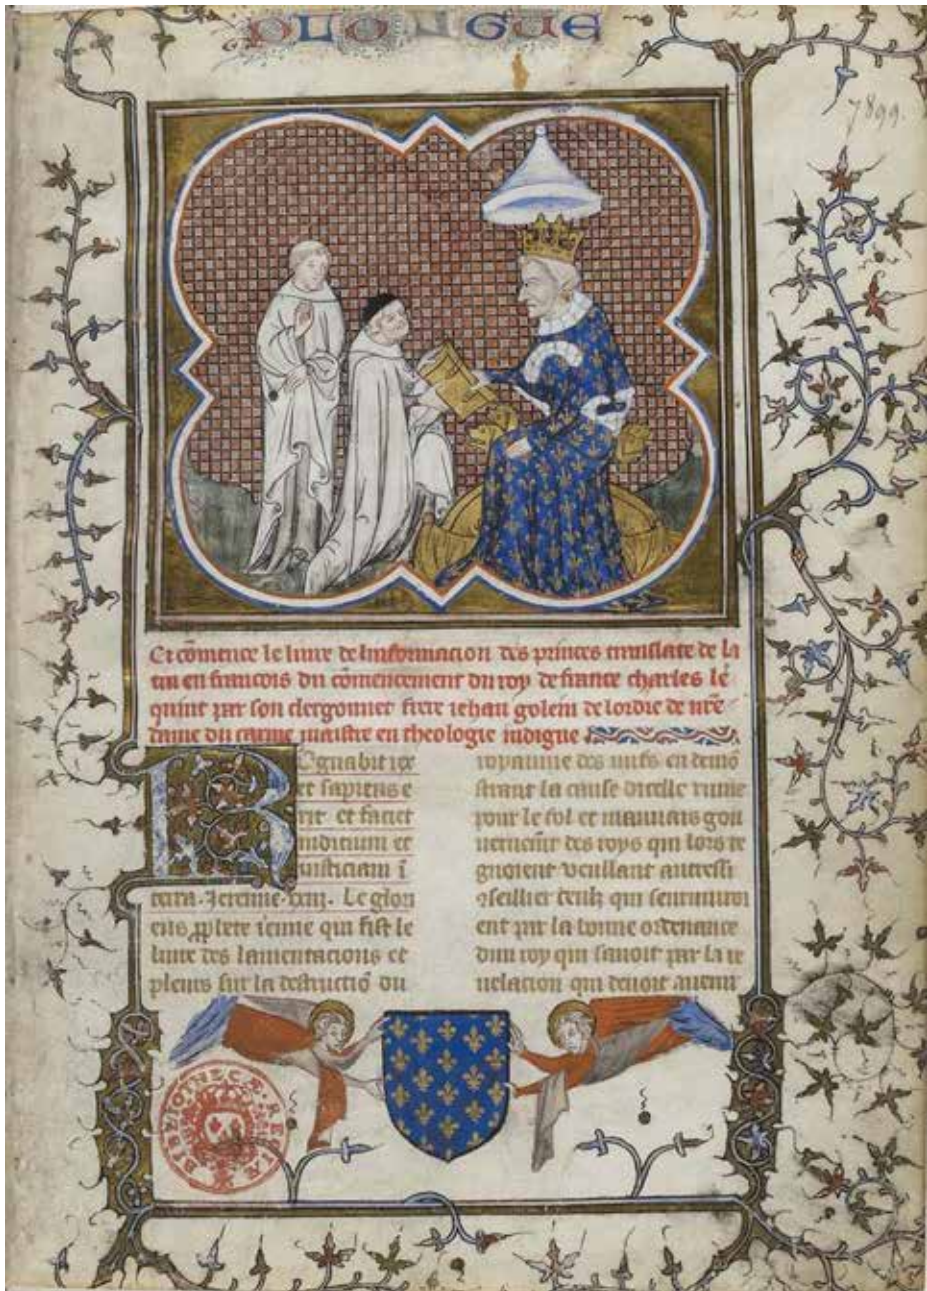 OLO GUE
7899.
Ci cōmence le liure de linformacion des princes translate de la
tin en francois du cōmencement du roy de france charles le
quint par son clergonnet frere iehan golein de lordre de nr̄e
dame du carme maistre en theologie indigne
Regnabit rex
et sapiens e
rit et faciet
iudicium et
iusticiam ī
terra. Jeremie. xxiij. Le glori
eus ꝓphete iermie qui fist le
liure des lamentacions et
pleurs sur la destructiō du
royaume des iuifs en demō
strant la cause dicelle ruine
pour le fol et mauuais gou
uernem̄t des roys qui lors re
gnoient veullant autressi
ꝯseillier ceulz qui seruiuroi
ent par la bonne ordenance
dun roy qui sauoit par la re
uelacion qui deuoit auenir
BIBLIOTHECÆ REGIÆ